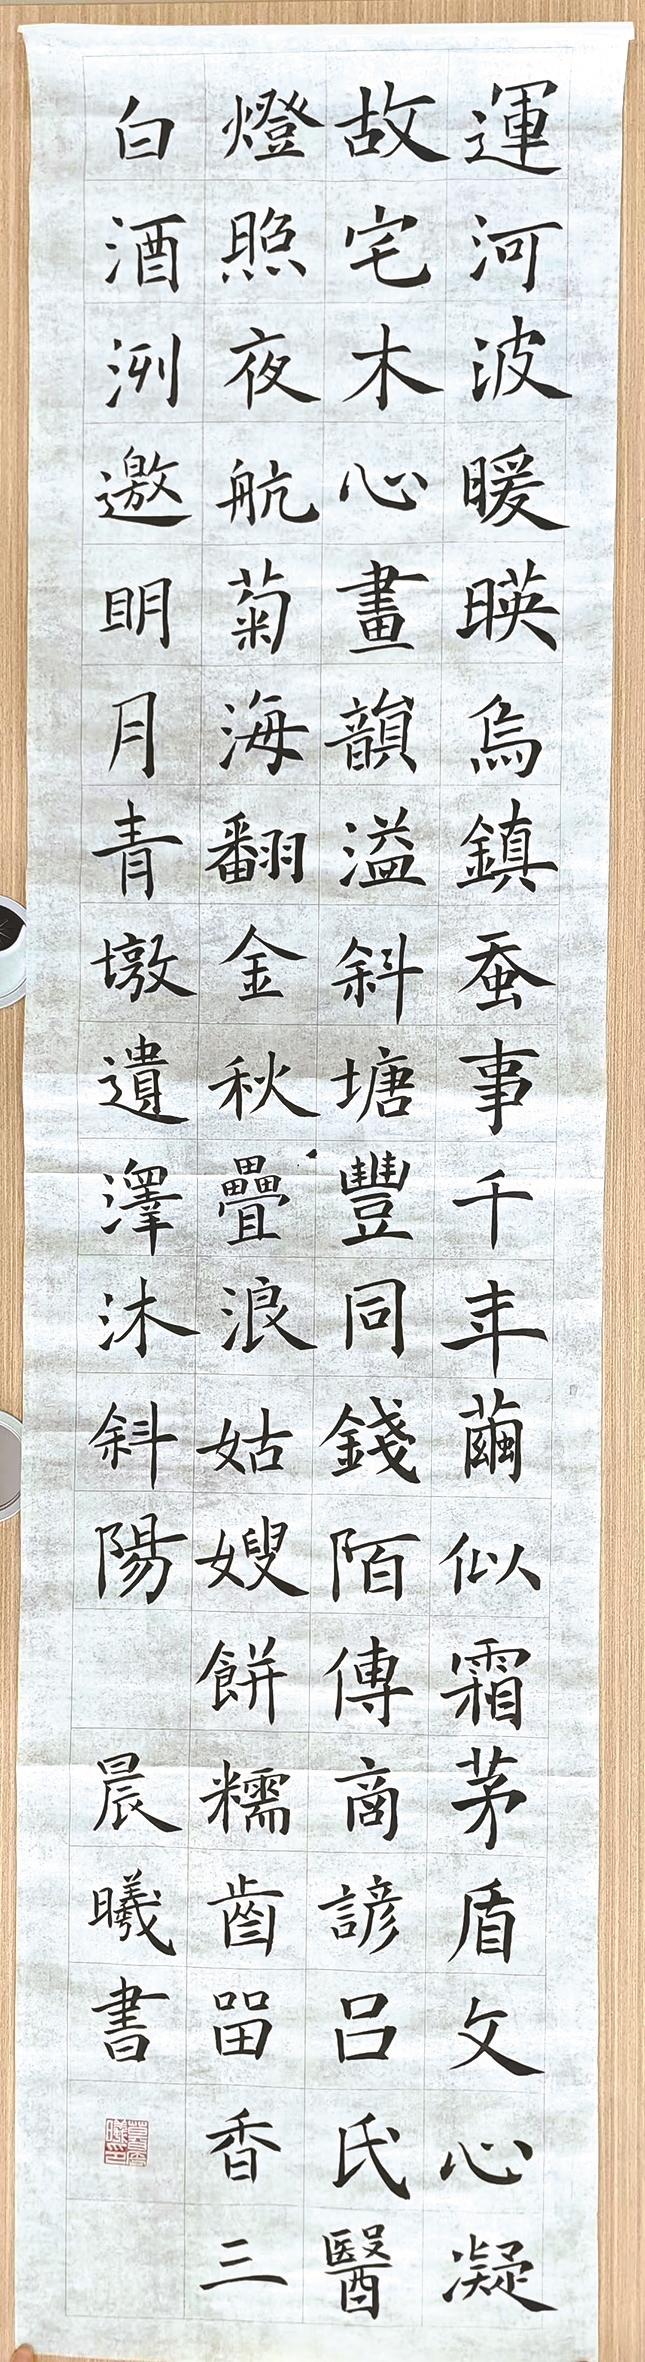 運河波暖暎烏鎮蚕事千年繭似霜茅盾文心凝
故宅木心畫韻溢斜塘豐同錢陌傳商諺吕氏醫
燈照夜航菊海翻金秋疊浪姑嫂餅糯齒留香三
白酒洌邀明月青墩遺澤沐斜陽
晨曦書